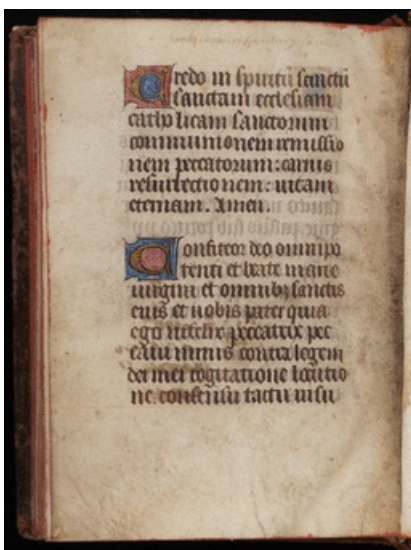 Credo in spiritū sanctū
sanctam ecclesiam
catho licam sanctorum
communionem remissio
nem peccatorum: carnis
resurrectio nem: uitam
eternam. Amen.
Confiteor deo omnipo
tenti et beate marie
uirgini et omnibꝫ sanctis
eius et uobis pater quia
ego peccatrix pec
caui nimis contra legem
dei mei cogitatione locutio
ne. consensu tactu uisu